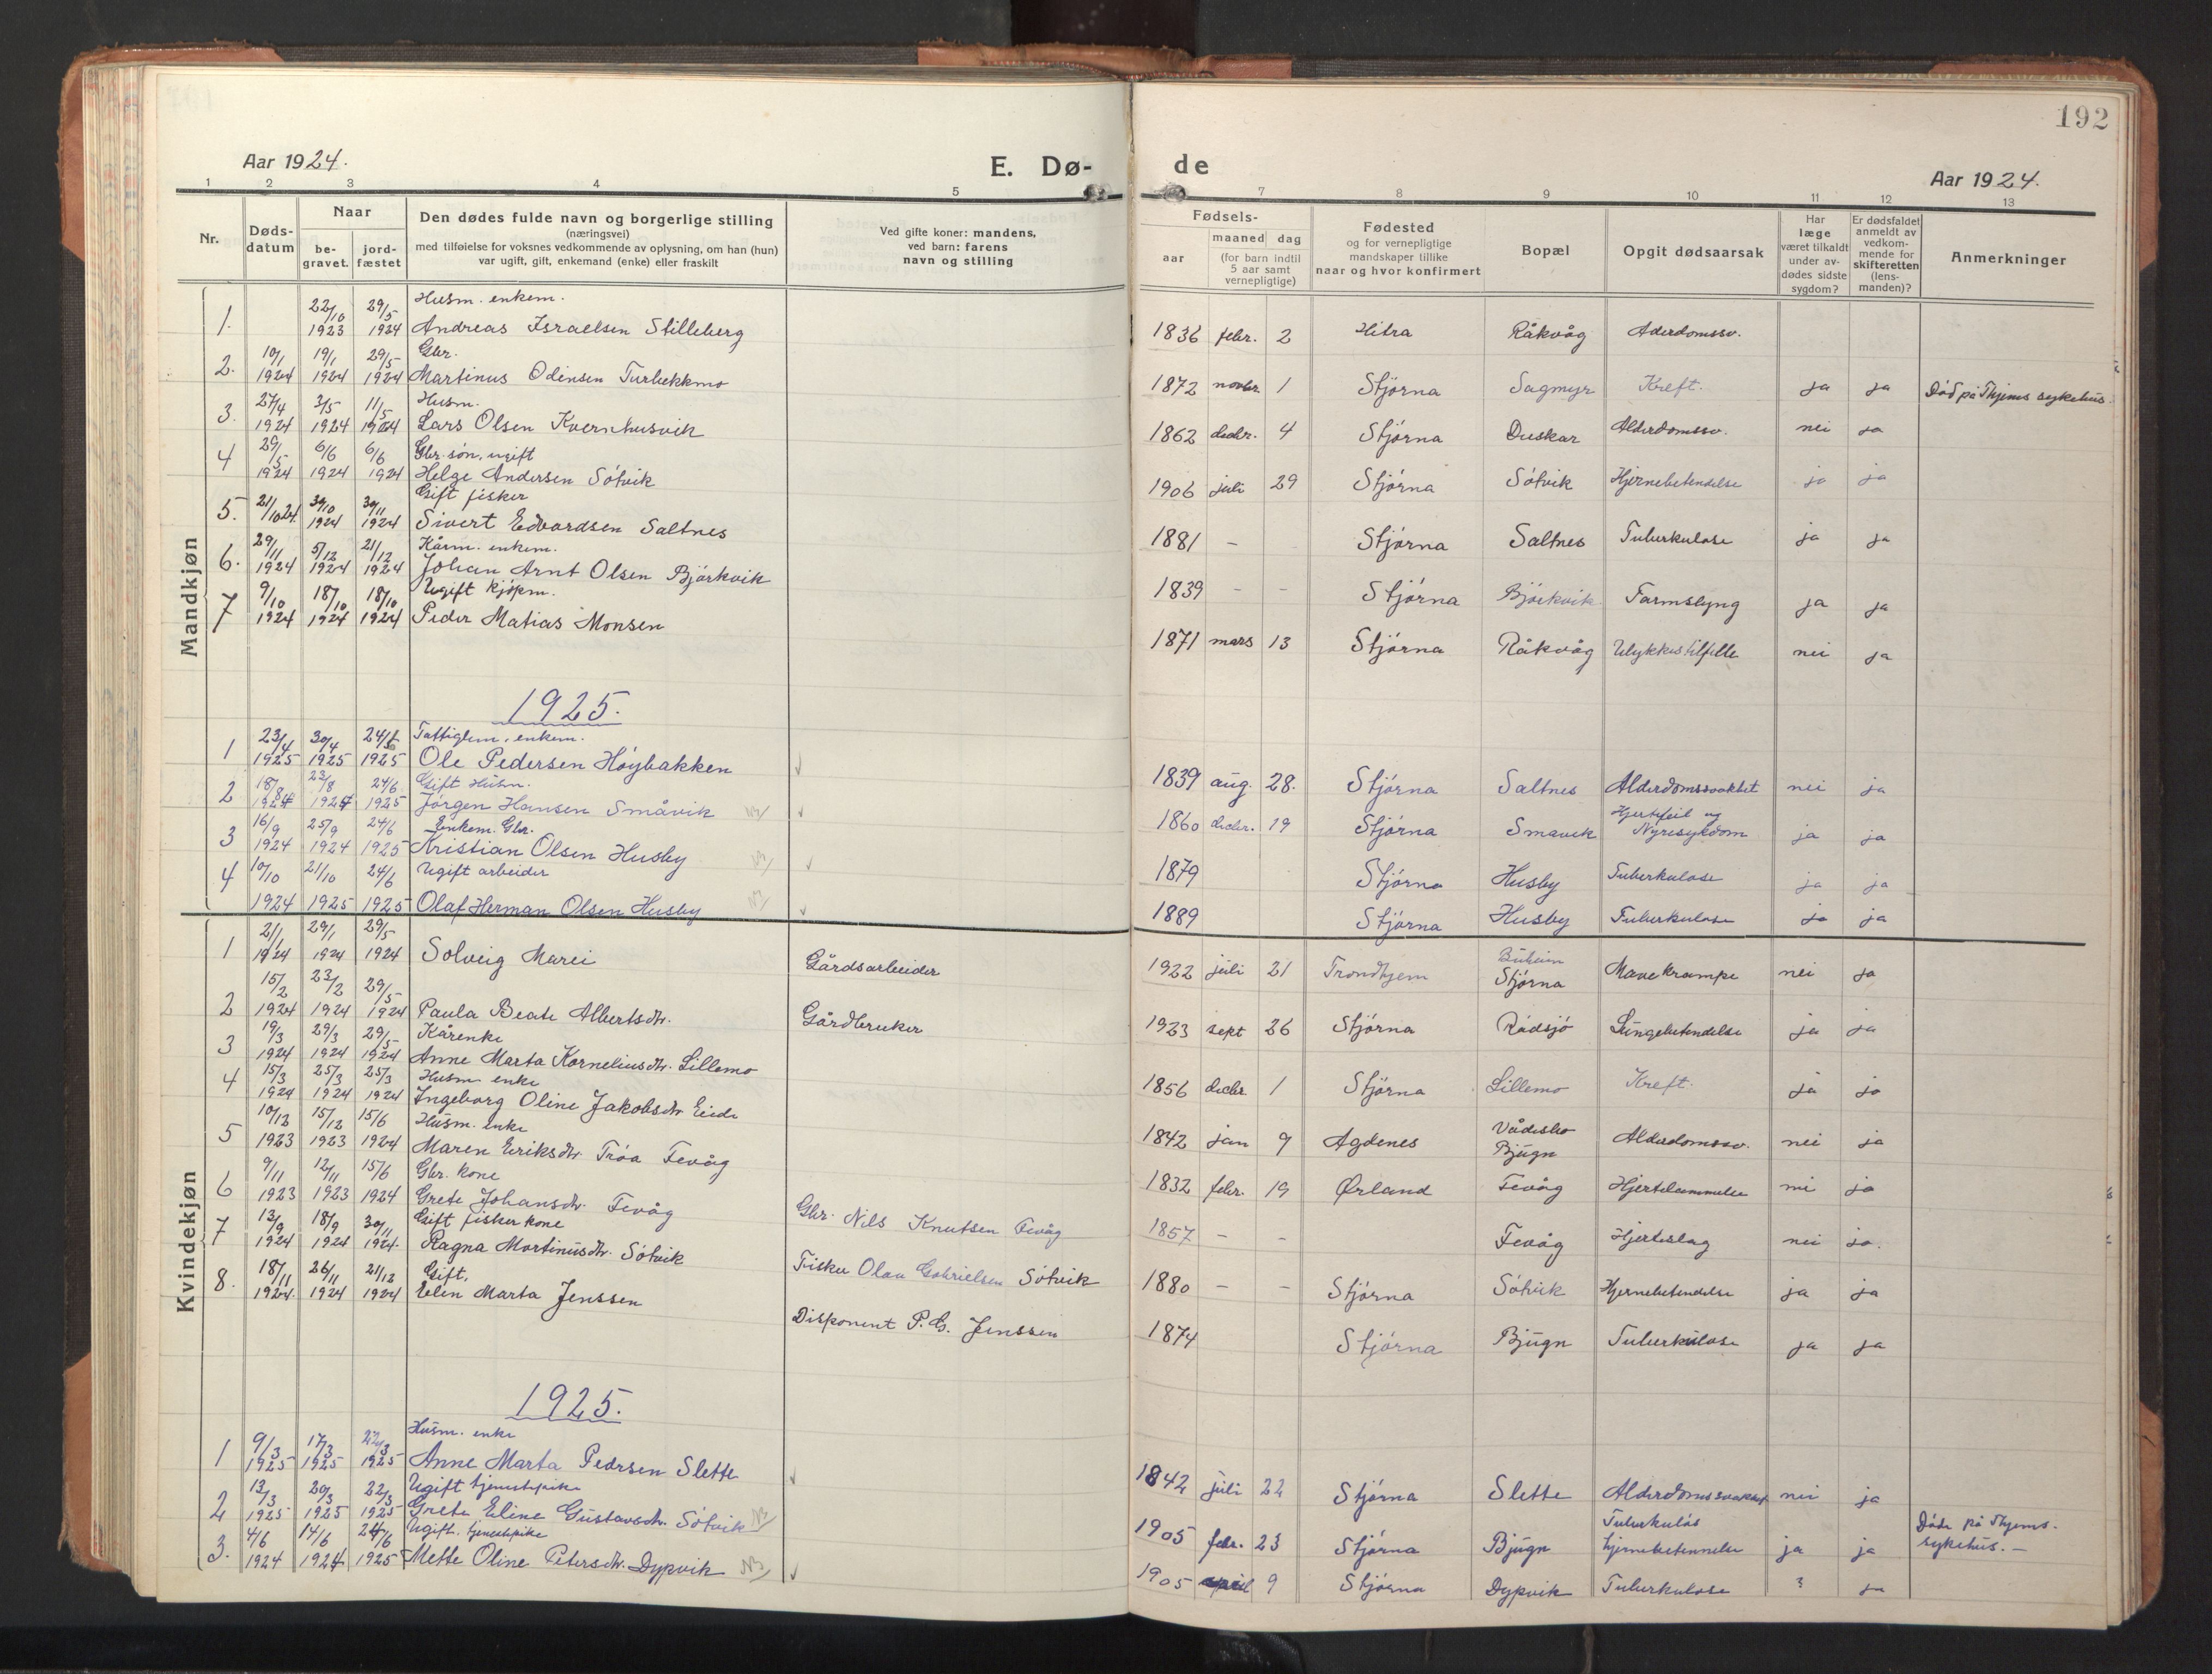 192
Aar 1924.
E. Dø-
de
Aar 1924.
1 2 3 4 5 7 8 9 10 11 12 13
Nr.
Døds-
datum
Naar
be-
gravet.
jord-
fæstet
Den dødes fulde navn og borgerlige stilling
(næringsvei)
med tilføielse for voksnes vedkommende av oplysning, om han (hun)
var ugift, gift, enkemand (enke) eller fraskilt
Ved gifte koner: mandens,
ved barn: farens
navn og stilling
Fødsels-
aar
maaned dag
(for barn indtil
5 aar samt
vernepligtige)
Fødested
og for vernepligtige
mandskaper tillike
naar og hvor konfirmert
Bopæl
Opgit dødsaarsak
Har
læge
været tilkaldt
under av-
dødes sidste
sygdom?
Er dødsfaldet
anmeldt av
vedkom-
mende for
skifteretten
(lens-
manden)?
Anmerkninger
Mandkjøn
22/10 29/5 Husm. enkem.
1. 1923 1924 Andreas Israelsen Stilleberg 1836 febr. 2 Hitra Råkvåg Aderdomssv.
10/1 19/1 29/5 Gbr.
2. 1924 1924 1924 Martinus Odinsen Turbekkmo 1872 novbr. 1 Stjørna Sagmyr Kreft. ja ja Död på Thjems sykehus.
27/4 3/5 11/5 Husm.
3. 1924 1924 1924 Lars Olsen Kvernhusvik 1862 decbr. 4 Stjørna Duskar Alderdomssv. nei ja
29/5 6/6 6/6 Gbr. søn, ugift
4 1924 1924 1924 Helge Andersen Søtvik 1906 juli 29 Stjørna Søtvik Hjernebetendelse ja ja
Gift fisker
5. 21/10 24. 30/10 1924 30/11 1924 Sivert Edvardsen Saltnes 1881 - Stjørna Saltnes Tuberkulose ja ja
29/11 5/12 21/12 Kårm. enkem.
6. 1924 1924 1924 Johan Arnt Olsen Bjørkvik 1839 - - Stjørna Bjørkvik Tarmslyng ja ja
9/10 18/10 18/10 Ugift kjøpm.
7 1924 1924 1924 Peder Matias Monsen 1871 mars 13 Stjørna Råkvåg Ulykkestilfelle nei ja
1925.
23/4 30/4 24/6 Fattiglem, enkem.
1 1925 1925 1925 Ole Pedersen Høybakken 1839 aug. 28. Stjørna Saltnes Alderdomssvakhet nei ja
18/8 23/8 24/6 Gift Husm.
2 1924 1924 1925 Jørgen Hansen Småvik 1860 decbr. 19 Stjørna Smavik Hjertefeil og
Nyresykdom ja ja
16/9 25/9 24/6 Enkem. Gbr.
3 1924 1924 1925 Kristian Olsen Husby 1879 Stjørna Husby Tuberkulose ja ja
4 10/10 21/10 24/6 Ugift arbeider
1924 1925 1925 Olaf Herman Olsen Husby 1889 Stjørna Husby Tuberkulose ja ja
Kvindekjøn
21/1 29/1 29/5
1 1924 1924 1924 Solveig Marei Gårdsarbeider 1922 juli 21 Trondhjem Buheim
Stjørna Mavekrampe nei ja
15/2 23/2 29/5
2 1924 1924 1924 Paula Beate Albertsdtr. Gårdbruker 1923 sept 26 Stjørna Rödsjö Lungebetendelse ja ja
19/3 29/3 29/5 Kårenke
3 1924 1924 1924 Anne Marta Korneliusdtr. Lillemo 1856 decbr 1 Stjørna Lillemo Kreft. ja ja
15/3 25/3 25/3 Husm enke
4 1924 1924 1924 Ingeborg Oline Jakobsdtr Eide 1842 jan 9 Agdenes
Bjugn Alderdomssv. nei ja
10/12 15/12 15/6 Husm. enke
5 1923 1923 1924 Maren Eriksdtr. Trøa Fevåg 1832 febr. 19 Ørland Fevåg Hjertelammelse nei ja
9/11 12/11 15/6 Gbr. kone
6 1923 1923 1924 Grete Johansdtr. Fevåg Gbr. Nils Knutsen Fevåg 1857 - - Fevåg Hjerteslag nei ja.
13/9 18/9 30/11 Gift fisker kone
7 1924 1924 1924. Ragna Martinusdtr. Søtvik Fisker Olav Gabrielsen Søtvik 1880 - - Stjørna Søtvik Hjernebetendelse ja ja
18/11 26/11 21/12 Gift.
8. 1924. 1924 1924 Elen Marta Jenssen Disponent P. G. Jenssen 1874 Stjørna Bjugn Tuberkulose ja ja
1925.
9/3 17/3 22/3 Husm. enke
1 1925 1925 1925 Anne Marta Pedrsen Slette 1842 juli 22 Stjørna Slette Alderdomssvakhet nei ja
13/3 20/3 22/3 Ugift tjenestepike
2 1925 1925 1925 Grete Eline Gustavsdtr. Søtvik 1905 febr. 23 Stjørna Bjugn Tuberkuløs
hjernebetennelse ja ja Døde på Thjems.
sykehus. -
4/6 14/6 24/6 Ugift. tjenestepike
3. 1924 1924 1925 Mette Oline Petersdtr. Dypvik 1905 april 9 Stjørna Dypvik Tuberkulose ? ja